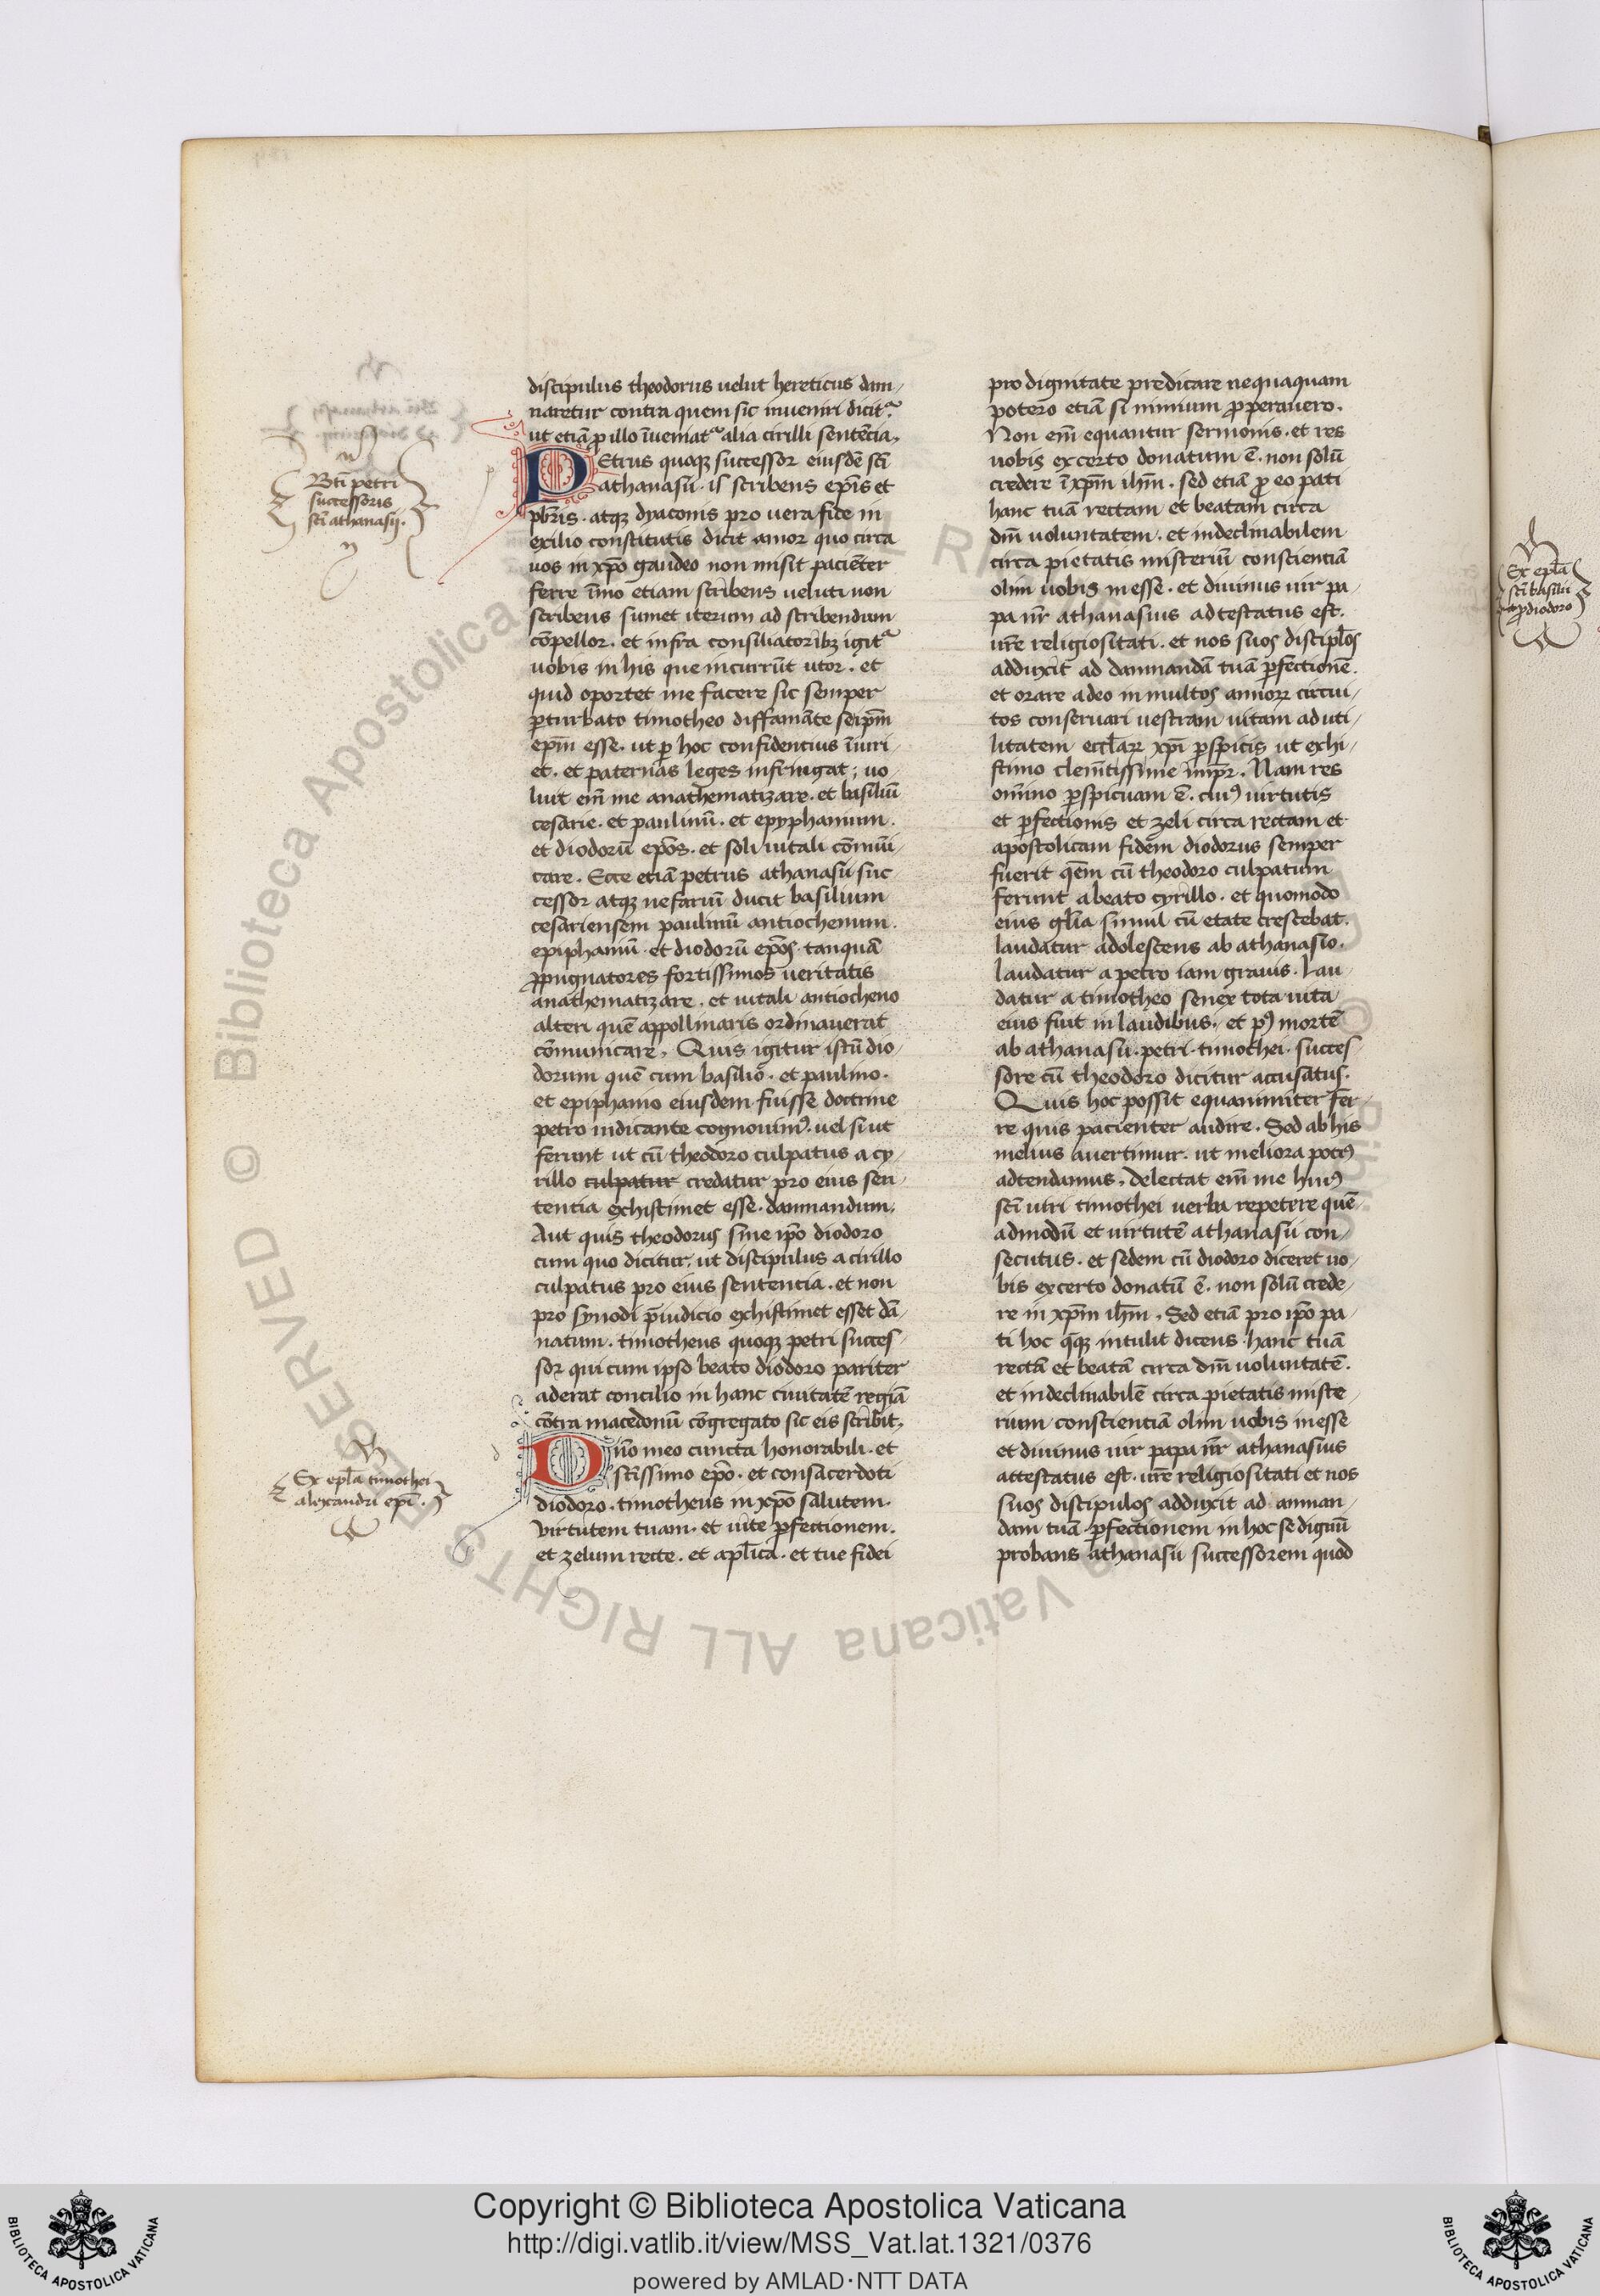 discipulus theodorus uelut hereticus dam-
naretur contra quem sic inueniri dicit᷑.
ut etiā p illo īueniat᷑ alia cirilli sentēcia.
PEtrus quoqꝫ successor eiusdē scī
athanasii. is scribens epīs et
pb̄ris. atqꝫ dyaconis pro uera fide in
exilio constitutis dicit amor quo circa
uos in xp̄o gaudeo non misit paciēter
ferre īmo etiam scribens ueluti non
scribens sumet iterum ad scribendum
cōpellor. et infra consiliatoribꝫ igit᷑
uobis in his que incurrūt utor. et
quid oportet me facere sic semper
ꝑturbato timotheo diffamāte seip̄m
ep̄m esse. ut ꝑ hoc confidencius īiuri-
et. et paternas leges infringat; uo-
luit em̄ me anathematizare. et basiliū
cesarie. et paulinū. et epyphanium.
et diodorū ep̄os. et soli uitali cōmūi-
care. Ecce etiā petrus athanasii suc-
cessor atqꝫ nefariū ducit basilium
cesariensem paulinū antiochenum.
epiphaniū et diodorū ep̄os tanquā
ꝓpugnatores fortissimos ueritatis
anathematizare. et uitali antiocheno
alteri quē appollinaris ordinauerat
cōmunicare. Quis igitur istū dio-
dorum quē cum basilio. et paulino.
et epiphanio eiusdem fuisse doctrine
petro iudicante cognouimꝰ. uel si ut
ferunt ut cū theodoro culpatus a cy-
rillo culpatur credatur pro eius sen-
tentia exhistimet esse. damnandum.
Aut quis theodorus sine ip̄o diodoro
cum quo dicitur, ut discipulus a cirillo
culpatus pro eius sententia. et non
pro synodi p̄iudicio exhistimet esset dā-
natum. timotheus quoqꝫ petri succes-
sor qui cum ipso beato diodoro pariter
aderat concilio in hanc ciuitatē regiā
cōtra macedoniū cōgregato sic eis scribit.
Dn̄o meo cuncta honorabili. et
sc̄issimo ep̄o. et consacerdoti
diodoro. timotheus in xp̄o salutem.
Virtutem tuam. et uite ꝑfectionem.
et zelum recte. et apl̄ica. et tue fidei
Btī petri
successoris
scī athanasij.
Ex ep̄la timothei
alexandri epī.
pro dignitate predicare nequaquam
potero etiā si nimium ꝓperauero.
Non em̄ equantur sermonis. et res
uobis ex certo donatum ē. non solū
credere ī xp̄m ih̄m. sed etiā ꝓ eo pati
hanc tuā rectam et beatam circa
dn̄m uoluntatem. et indeclinabilem
circa pietatis misteriū conscienciā
olim uobis inesse. et diuinus uir pa-
pa n̄r athanasius adtestatus est.
ur̄e religiositati. et nos suos discipl̄os
adduxit ad damnandā tuā ꝑfectionē.
et orare adeo in multos annoꝝ circui-
tos conseruari uestram uitam ad uti-
litatem eccl̄iaꝝ xpī ꝑspicis ut exhi-
stimo clemētissime imp̄r. Nam res
omīno ꝑspicuam ē. cuiꝰ uirtutis
et ꝑfectionis et zeli circa rectam et
apostolicam fidem diodorus semper
fuerit quem cū theodoro culpatum
ferunt a beato cyrillo. et quomodo
eius gl̄ia simul cū etate crescebat.
laudatur adolescens ab athanasio.
laudatur a petro iam grauis. Lau-
datur a timotheo senex tota uita
eius fuit in laudibus. et pꝰ mortē
ab athanasii. petri. timothei. succes-
sore cū theodoro dicitur accusatus.
Quis hoc possit equanimiter fer-
re quis pacienter audire. Sed ab his
melius auertimur. ut meliora potiꝰ
adtendamus. delectat em̄ me huiꝰ
scī uiri timothei uerba repetere quē-
admodū et uirtutē athanasii con-
secutus. et sedem cū diodoro diceret uo-
bis ex certo donatū ē. non solū crede-
re in xp̄m ih̄m. Sed etiā pro ip̄o pa-
ti hoc quoqꝫ intulit dicens. hanc tuā
rectā et beatā circa dn̄m uoluntatē.
et indeclinabilē circa pietatis miste-
rium conscientiā olim uobis inesse
et diuinus uir papa n̄r athanasius
attestatus est. ur̄e religiositati et nos
suos discipulos adduxit ad amman-
dam tuā ꝑfectionem in hoc se dignū
probans athanasii successorem quod
Ex ep̄la
scī basilii
ꝓ diodoro
© Biblioteca Apostolica Vaticana ALL RIGHTS RESERVED
Copyright © Biblioteca Apostolica Vaticana
http://digi.vatlib.it/view/MSS_Vat.lat.1321/0376
powered by AMLAD·NTT DATA
BIBLIOTECA APOSTOLICA VATICANA
BIBLIOTECA APOSTOLICA VATICANA